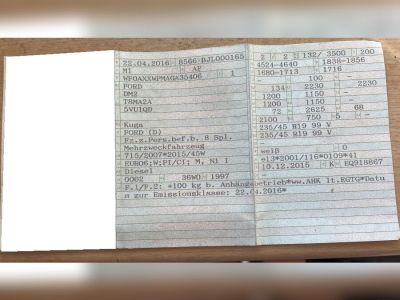 22.04.2016 8566 BJL000165
M1 AF
WF0AXXWPMAGA35406 1
FORD
DM2
T8MA2A
5VU1QD
Kuga
FORD (D)
Fz.z.Pers.bef.b. 8 Spl.
Mehrzweckfahrzeug
715/2007*2015/45W
EURO6;W;PI/CI; M, N1 I
Diesel
0002 36W0 1997
F.1/F.2: +100 kg b. Anhängebetrieb*ww.AHK lt.EGTG*Datu
m zur Emissionsklasse: 22.04.2016*
2 / 2 132/ 3500 200
4524-4640 1838-1856
1680-1713 1716
- 100 -
134 2230 2230
1200 1150 -
1200 1150 -
72 2625 68
2100 750 5 -
235/45 R19 99 V
235/45 R19 99 V
-
weiß 0
e13*2001/116*0109*41
10.12.2015 K EQ918867